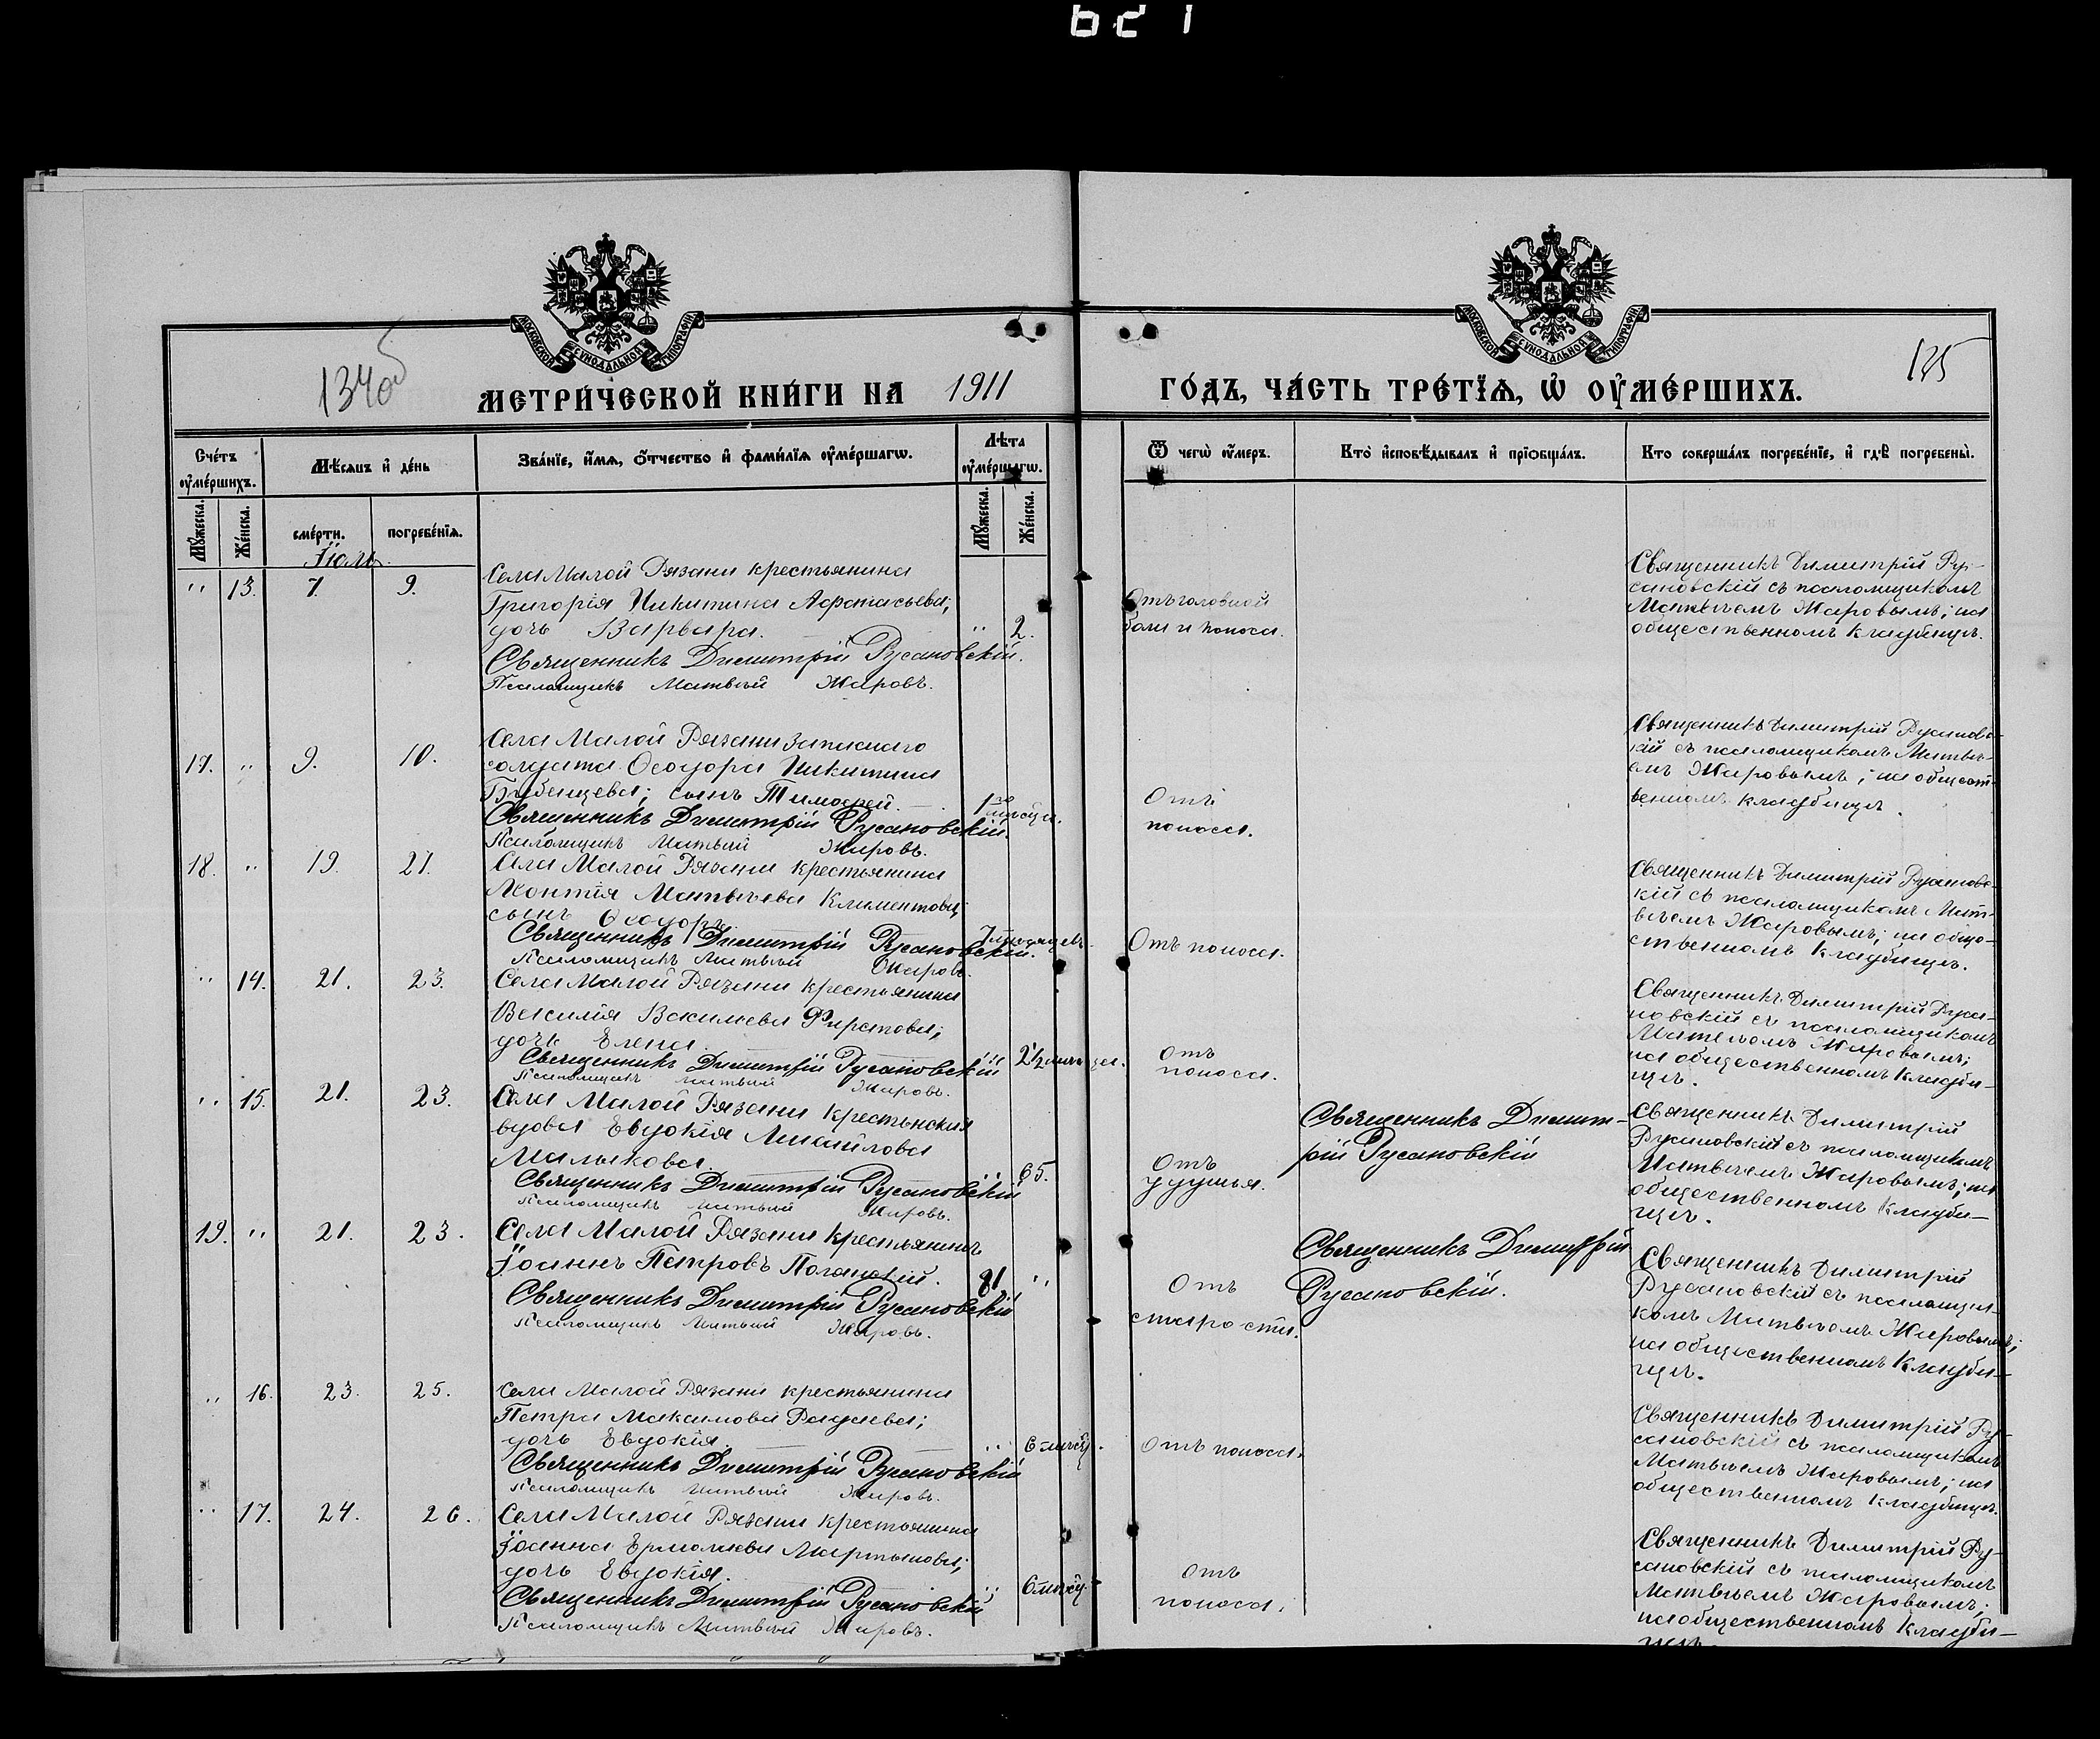 621
МОСКОВСКОЙ СУНОДАЛЬНОЙ ТИПОГРАФІИ
МОСКОВСКОЙ СУНОДАЛЬНОЙ ТИПОГРАФІИ
134об
125
МЕТРИ́ЧЕСКОЙ КНИ́ГИ НА 1911 ГО́ДЪ, ЧА́СТЬ ТРЕ́ТЇѦ, Ѡ҆ ОУ҆МЕ́РШИХЪ.
Счетъ оумершихъ.
Мѣсяцъ и день
Званїе, имѧ, отчество и фамилїѧ оумершагѡ.
Лѣта оумершагѡ.
Ѿ чегѡ оумеръ.
Кто исповѣдывалъ и прїобщалъ.
Кто совершалъ погребенїе, и гдѣ погребены.
Мужеска.
Женска.
смерти.
погребенїѧ.
Мужеска.
Женска.
Іюль.
" 13. 7. 9.
Села Малой Рязани крестьянина
Григорія Никитина Афанасьева;
дочь Варвара. " 2.
Священникъ Димитрій Русановскій.
Псаломщикъ Матвѣй Жаровъ.
Отъ головной
боли и поноса.
Священникъ Димитрій Ру-
сановскій съ псаломщикомъ
Матвѣемъ Жаровымъ; на
общественномъ кладбищѣ.
17. " 9. 10.
Села Малой Рязани запаснаго
солдата Ѳеодора Никитина
Бубенцева; сынъ Тимофей.
Священникъ Димитрій Русановскій
Псаломщикъ Матвѣй Жаровъ.
Отъ
поноса.
Священникъ Димитрій Русановс-
кій съ псаломщикомъ Матвѣ-
емъ Жаровымъ; на общест-
венномъ кладбищѣ.
18. " 19. 21.
Села Малой Рязани крестьянина
Леонтія Матвѣева Климентова;
сынъ Ѳеодоръ.
Священникъ Димитрій Русановскій.
Псаломщикъ Матвѣй Жаровъ.
7 мѣсяцевъ.
Отъ поноса.
Священникъ Димитрій Русановс-
кій съ псаломщикомъ Мат-
вѣемъ Жаровымъ; на обще-
ственномъ кладбищѣ.
" 14. 21. 23.
Села Малой Рязани крестьянина
Василія Вакилева Фирстова;
дочь Елена.
Священникъ Димитрій Русановскій 2½ мѣсяца.
Псаломщикъ Матвѣй Жаровъ.
Отъ
поноса.
Священникъ Димитрій Руса-
новскій съ псаломщикомъ
Матвѣемъ Жаровымъ;
на общественномъ кладби-
щѣ.
" 15. 21. 23.
Села Малой Рязани крестьянская
вдова Евдокія Михайлова
Малыкова. " 65.
Священникъ Димитрій Русановскій
Псаломщикъ Матвѣй Жаровъ.
Отъ
удушья.
Священникъ Димит-
рій Русановскій
Священникъ Димитрій
Русановскій съ псаломщикомъ
Матвѣемъ Жаровымъ; на
общественномъ кладби-
щѣ.
19. " 21. 23.
Села Малой Рязани крестьянинъ
Іоаннъ Петровъ 81 "
Священникъ Димитрій Русановскій
Псаломщикъ Матвѣй Жаровъ.
Отъ
старости.
Священникъ Димитрій
Русановскій.
Священникъ Димитрій
Русановскій съ псаломщи-
комъ Матвѣемъ Жаровымъ;
на общественномъ кладби-
щѣ.
" 16. 23. 25.
Села Малой Рязани крестьянина
Петра Максимова Радаева;
дочь Евдокія. " 6 мѣсяц.
Священникъ Димитрій Русановскій
Псаломщикъ Матвѣй Жаровъ.
Отъ поноса.
Священникъ Димитрій Ру-
сановскій съ псаломщикомъ
Матвѣемъ Жаровымъ; на
общественномъ кладбищѣ.
" 17. 24. 26.
Села Малой Рязани крестьянина
Іоанна Ермолаева Мартынова;
дочь Евдокія.
Священникъ Димитрій Русановскій " 6 мѣсяц.
Псаломщикъ Матвѣй Жаровъ.
Отъ
поноса.
Священникъ Димитрій Ру-
сановскій съ псаломщикомъ
Матвѣемъ Жаровымъ;
на общественномъ кладби-
щѣ.